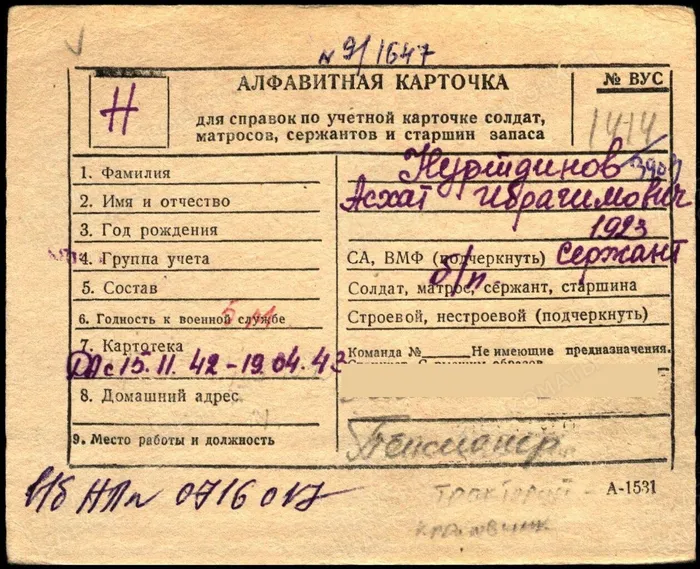 № 9/1647
АЛФАВИТНАЯ КАРТОЧКА
№ ВУС
Н
для справок по учетной карточке солдат,
матросов, сержантов и старшин запаса
1414
1. Фамилия
Нуртдинов
2. Имя и отчество
Асхат Ибрагимович
3. Год рождения
1923
4. Группа учета
СА, ВМФ (подчеркнуть) Сержант
б/п
5. Состав
Солдат, матрос, сержант, старшина
6. Годность к военной службе
Строевой, нестроевой (подчеркнуть)
7. Картотека
Команда №____ Не имеющие предназначения.
с 15.11.42-19.04.43
8. Домашний адрес
9. Место работы и должность
Пенсионер
НПп 0716017
А-1531